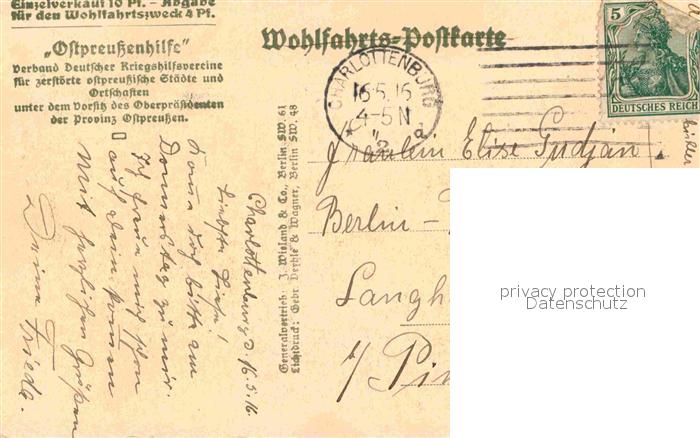 Einzelverkauf 10 Pf. – Abgabe
für den Wohlfahrtszweck 4 Pf.
„Ostpreußenhilfe"
Verband Deutscher Kriegshilfsvereine
für zerstörte ostpreußische Städte und
Ortschaften
unter dem Vorsitz des Oberpräsidenten
der Provinz Ostpreußen.
Wohlfahrts-Postkarte
CHARLOTTENBURG
16.5.16
4-5N
* 2 d
5
DEUTSCHES REICH
Generalvertrieb: J. Wieland & Co., Berlin SW. 61
Lichtdruck: Gebr. Deyhle & Wagner, Berlin SW. 48
Charlottenburg d. 16.5.16
Liebste Liese!
Komm doch bitte am
Donnerstag zu mir.
Ich freue mich schon
auf dein kommen
Mit herzlichen Grüßen
Deine Friedel.
Fräulein Elise Gudjan
Berlin-
Langh
b/ Pin
privacy protection
Datenschutz